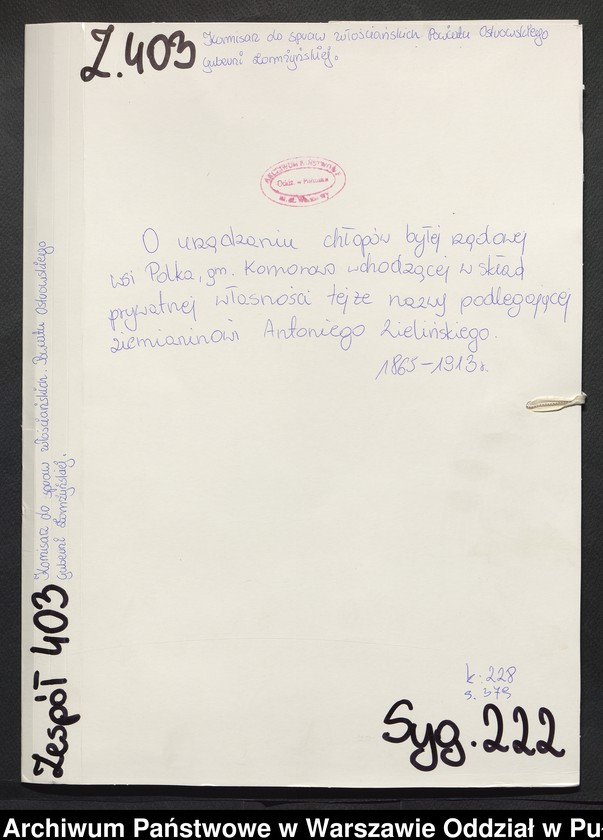 Z. 403
Komisarz do spraw włościańskich Powiatu Ostrowskiego
Guberni Łomżyńskiej.
ARCHIWUM PAŃSTWOWE
Oddz. w Pułtusku
m. st. Warszawy
O urządzaniu chłopów byłej rządowej
wsi Polka, gm. Komorowo wchodzącej w skład
prywatnej własności tejże nazwy podlegającej
ziemianinowi Antoniego Zielińskiego.
1865-1913r.
Komisarz do spraw włościańskich. Powiatu Ostrowskiego
Guberni Łomżyńskiej.
Zespół 403
k: 228
s. 379
Syg. 222
Archiwum Państwowe w Warszawie Oddział w Pu